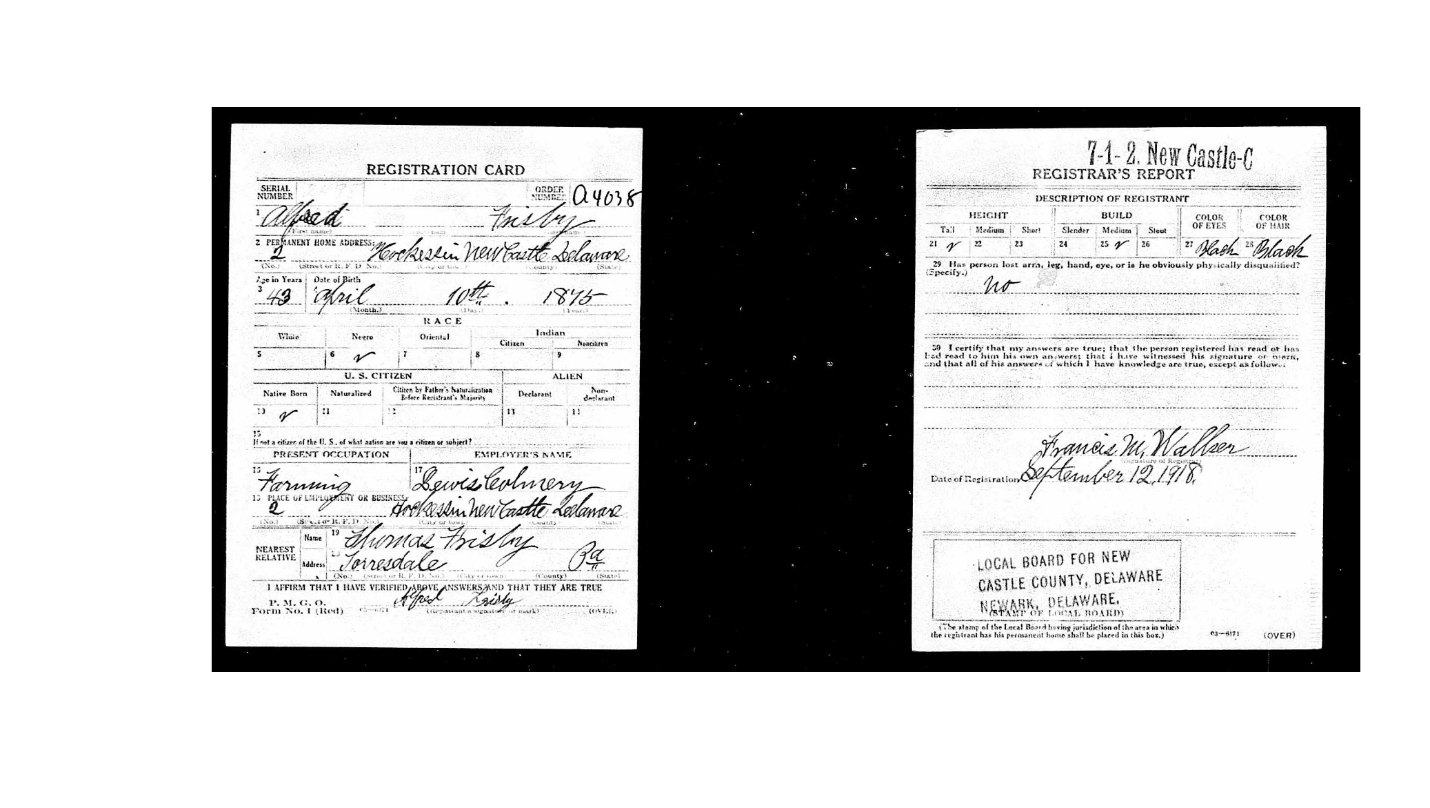 REGISTRATION CARD
SERIAL NUMBER
ORDER NUMBER A4038
1 Alfred Frisby
(First name)
2 PERMANENT HOME ADDRESS:
2 Hockessin New Castle Delaware
(No.) (Street or R. F. D. No.) (City or town) (County) (State)
Age in Years Date of Birth
3 43 April 10th. 1875
(Month.) (Day.) (Year.)
RACE
White Negro Oriental Indian
Citizen Noncitizen
5 6 ✓ 7 8 9
U. S. CITIZEN ALIEN
Native Born Naturalized Citizen by Father's Naturalization Before Registrant's Majority Declarant Non-declarant
10 ✓ 11 12 13 14
15
If not a citizen of the U. S., of what nation are you a citizen or subject?
PRESENT OCCUPATION EMPLOYER'S NAME
16 Farming 17 Lewis Colmery
18 PLACE OF EMPLOYMENT OR BUSINESS:
2 Hockessin New Castle Delaware
(No.) (Street or R. F. D. No.) (City or town) (County) (State)
NEAREST RELATIVE
Name 19 Thomas Frisby
Address 20 Torresdale Pa
(No.) (Street or R. F. D. No.) (City or town) (County) (State)
I AFFIRM THAT I HAVE VERIFIED ABOVE ANSWERS AND THAT THEY ARE TRUE
P. M. G. O.
Form No. 1 (Red) 03-6171 Alfred Frisby
(Registrant's signature or mark) (OVER)
7-1-2. New Castle-C
REGISTRAR'S REPORT
DESCRIPTION OF REGISTRANT
HEIGHT BUILD COLOR OF EYES COLOR OF HAIR
Tall Medium Short Slender Medium Stout
21 ✓ 22 23 24 25 ✓ 26 27 Black 28 Black
29 Has person lost arm, leg, hand, eye, or is he obviously physically disqualified?
(Specify.)
no
30 I certify that my answers are true; that the person registered has read or has
had read to him his own answers; that I have witnessed his signature or mark,
and that all of his answers of which I have knowledge are true, except as follows:
Francis M. Walker
(Signature of Registrar)
Date of Registration September 12, 1918.
LOCAL BOARD FOR NEW
CASTLE COUNTY, DELAWARE
NEWARK, DELAWARE.
(STAMP OF LOCAL BOARD)
(The stamp of the Local Board having jurisdiction of the area in which
the registrant has his permanent home shall be placed in this box.)
03-6171 (OVER)